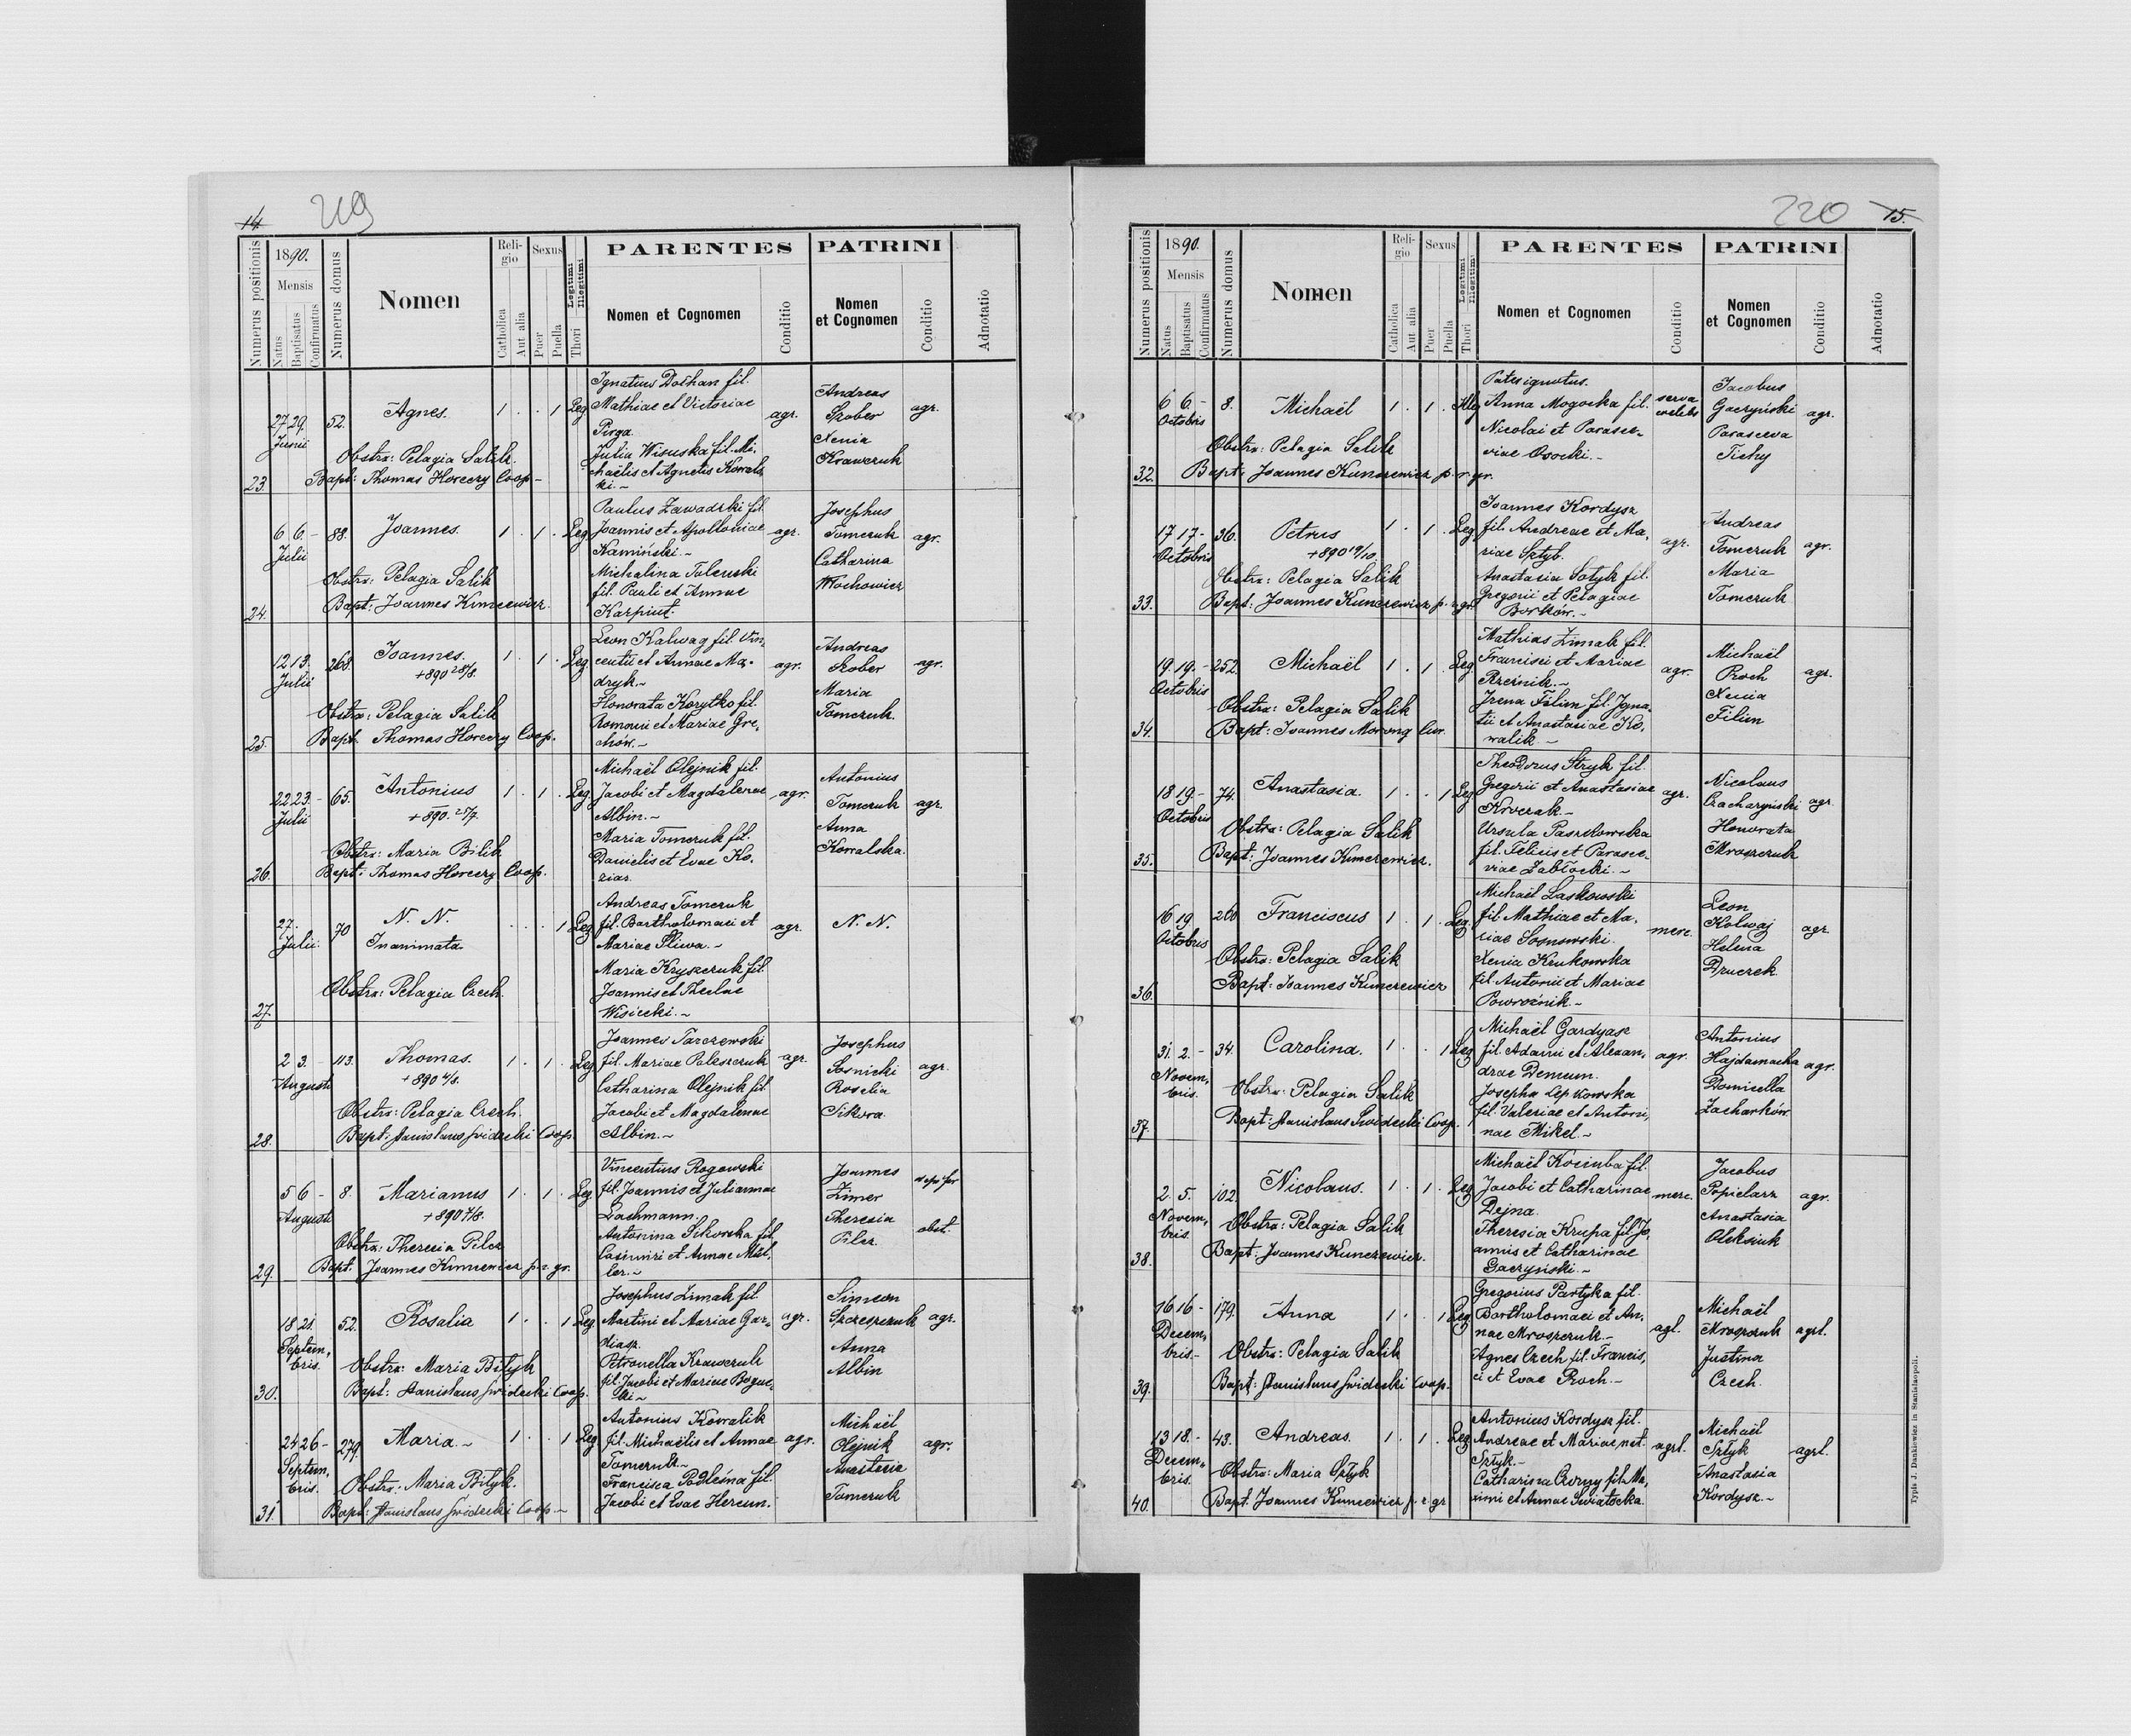 14
219
Numerus positionis
1890.
Mensis
Natus
Baptisatus
Confirmatus
Numerus domus
Nomen
Religio
Catholica
Aut alia
Sexus
Puer
Puella
Legitimi
Illegitimi
Thori
PARENTES
Nomen et Cognomen
Conditio
PATRINI
Nomen
et Cognomen
Conditio
Adnotatio
23.
27 29.
Junii
52.
Agnes.
1 . . 1 Leg
Obstrx: Pelagia Salik.
Bapt: Thomas Horeczy Coop -
Ignatius Dochan fil.
Mathiae et Victoriae
Pirga
Julia Wisuska fil. Mi,
chaëlis et Agnetis Kowals
ki. ~
agr.
Andreas
Skober
Xenia
Krawczuk
agr.
24.
6 6. -
Julii
88.
Joannes.
1 . 1 . Leg
Obstrx: Pelagia Salik
Bapt: Joannes Kunczewicz.
Paulus Zawadzki fil.
Joannis et Apolloniae
Kamiński. ~
Michalina Tulenski
fil. Pauli et Annae
Karpiut
agr.
Josephus
Tomczuk
Catharina
Włochowicz
agr.
25.
12 13.
Julii
268
Joannes.
+890 28/8.
1 . 1 . Leg
Obstrx: Pelagia Salik
Bapt. Thomas Horeczy Coop.
Leon Kalwag fil. Vin,
centii et Annae Ma-
dryk. ~
Honorata Korytko fil.
Romani et Mariae Gre,
chów. ~
agr.
Andreas
Skober
Maria
Tomczuk.
agr.
26.
22 23. -
Julii
65.
Antonius
+890. 25/7
1 . 1 . Leg
Obstrx: Maria Bilik
Bapt: Thomas Horeczy Coop.
Michaël Olejnik fil.
Jacobi et Magdalenae
Albin. ~
Maria Tomczuk fil.
Danielis et Evae Ko,
ziar.
agr.
Antonius
Tomczuk
Anna
Kowalska.
agr.
27.
27.
Julii.
70
N. N.
Inanimata
. . . 1 Leg
Obstrx: Pelagia Czech.
Andreas Tomczuk
fil. Bartholomaei et
Mariae Śliwa. ~
Maria Kryszczuk fil.
Joannis et Theclae
Wisiecki. ~
agr.
N. N.
28.
2 3. -
Augusti
113.
Thomas.
+890 4/8.
1 . 1 . Leg
Obstrx: Pelagia Czech.
Bapt: Stanislaus Swidecki Coop.
Joannes Tarczewski
fil. Mariae Paleszczuk
Catharina Olejnik fil.
Jacobi et Magdalenae
Albin. ~
agr.
Josephus
Sosnicki
Rosalia
Sikora
agr.
29.
5 6 -
Augusti
8.
Marianus
+890 7/8.
1 . 1 . Leg
Obstrx: Theresia Pilcz
Bapt. Joannes Kunczewicz p. r. gr.
Vincentius Rogowski
fil. Joannis et Juliannae
Lachmann.
Antonina Sikorska fil.
Casimiri et Annae Mül,
ler. ~
Joannes
Zimer
Theresia
Pilcz.
obst.
30.
18 21
Septem,
bris.
52.
Rosalia
1 . . 1 Leg
Obstrx: Maria Bilyk
Bapt: Stanislaus Swidecki Coop.
Josephus Zimak fil.
Martini et Mariae Gar,
diasz.
Petronella Krawczuk
fil. Jacobi et Mariae Boguc,
ki ~
agr.
Simeon
Szczepczuk
Anna
Albin
agr.
31.
24 26 -
Septem,
bris.
279.
Maria. ~
1 . . 1 Leg
Obstrx: Maria Bilyk.
Bapt: Stanislaus Swidecki Coop ~
Antonius Kowalik
fil. Michaëlis et Annae
Tomczuk. ~
Francisca Podleśna fil.
Jacobi et Evae Hercun.
agr.
Michaël
Olejnik
Anastasia
Tomczuk
agr.
220
15.
Numerus positionis
1890.
Mensis
Natus
Baptisatus
Confirmatus
Numerus domus
Nomen
Religio
Catholica
Aut alia
Sexus
Puer
Puella
Legitimi
Illegitimi
Thori
PARENTES
Nomen et Cognomen
Conditio
PATRINI
Nomen
et Cognomen
Conditio
Adnotatio
32.
6 6. -
Octobris
8.
Michaël
1 . 1 . Illeg
Obstrx: Pelagia Salik
Bapt: Joannes Kunczewicz p. r. gr.
Pater ignotus.
Anna Mogocka fil.
Nicolai et Parasce,
viae Osocki. ~
serva
Jacobus
Gaczyński
Parasceva
Tichy
agr.
33.
17 17 -
Octobris
36.
Petrus
+890 19/10
1 . 1 . Leg
Obstrx: Pelagia Salik
Bapt: Joannes Kunczewicz p. r. gr.
Joannes Kordysz
fil. Andreae et Ma,
riae Sztyk.
Anastasia Sotyk fil.
Gregorii et Pelagiae
Borków. ~
agr.
Andreas
Tomczuk
Maria
Tomczuk
agr.
34.
19 19. -
Octobris
252.
Michaël
1 . 1 . Leg
Obstrx: Pelagia Salik
Bapt: Joannes Morong Cur.
Mathias Zimak fil.
Francisci et Mariae
Rzeźnik. ~
Irena Filim fil. Igna,
tii et Anastasiae Ko,
walik. ~
agr.
Michaël
Proch
Xenia
Filim
agr.
35.
18 19 -
Octobris
74.
Anastasia.
1 . . 1 Leg
Obstrx: Pelagia Salik
Bapt: Joannes Kunczewicz.
Theodorus Stryk fil.
Gregorii et Anastasiae
Krverak. ~
Ursula Paszkowska
fil. Felicis et Parasce,
viae Zabłocki. ~
agr.
Nicolaus
Czacharyński
Honorata
Mroszczuk
agr.
36.
16 19
Octobris
260
Franciscus
1 . 1 . Leg
Obstrx: Pelagia Salik
Bapt: Joannes Kunczewicz
Michaël Laskowski
fil. Mathiae et Ma,
riae Sosnowski.
Xenia Krukowska
fil. Antonii et Mariae
Powroźnik. ~
merc.
Leon
Kolwaj
Helena
Druczek
agr.
37.
31. 2. -
Novem,
bris.
34.
Carolina.
1 . . 1 Leg
Obstrx: Pelagia Salik
Bapt: Stanislaus Swidecki Coop.
Michaël Gardyasz
fil. Adami et Alexan,
drae Demeum.
Josepha Lepkowska
fil. Valeriae et Antoni,
nae Mikel. ~
agr.
Antonius
Hajdamacha
Domicella
Zacharków
agr.
38.
2. 5.
Novem,
bris.
102.
Nicolaus.
1 . 1 . Leg
Obstrx: Pelagia Salik
Bapt: Joannes Kunczewicz.
Michaël Kociuba fil.
Jacobi et Catharinae
Dejna.
Theresia Krupa fil. Jo,
annis et Catharinae
Gaczyński. ~
merc.
Jacobus
Popielarz
Anastasia
Oleksiuk
agr.
39.
16 16 -
Decem,
bris. -
179.
Anna
1 . . 1 Leg
Obstrx: Pelagia Salik
Bapt: Stanislaus Swidecki Coop.
Gregorius Partyka fil.
Bartholomaei et An,
nae Mroszczuk. ~
Agnes Czech fil. Francis,
ci et Evae Proch. ~
agl.
Michaël
Mroszczuk
Justina
Czech.
agrl.
40.
13 18. -
Decem,
bris.
43.
Andreas.
1 . 1 . Leg
Obstrx: Maria Sztyk
Bapt. Joannes Kunczewicz p. r. gr
Antonius Kordysz fil.
Andreae et Mariae nat.
Sztyk. ~
Catharina
et Annae Swiatocka.
agrl.
Michaël
Sztyk
Anastasia
Kordysz. ~
agrl.
Typis J. Dankiewicz in Stanislaopoli.